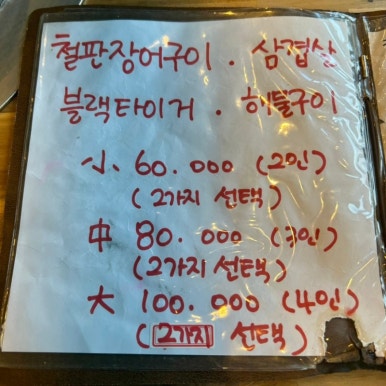 철판장어구이 . 삼겹살
블랙타이거 . 허들구이
小 60.000 (2인)
(2가지 선택)
中 80.000 (3인)
(2가지 선택)
大 100.000 (4인)
(2가지 선택)